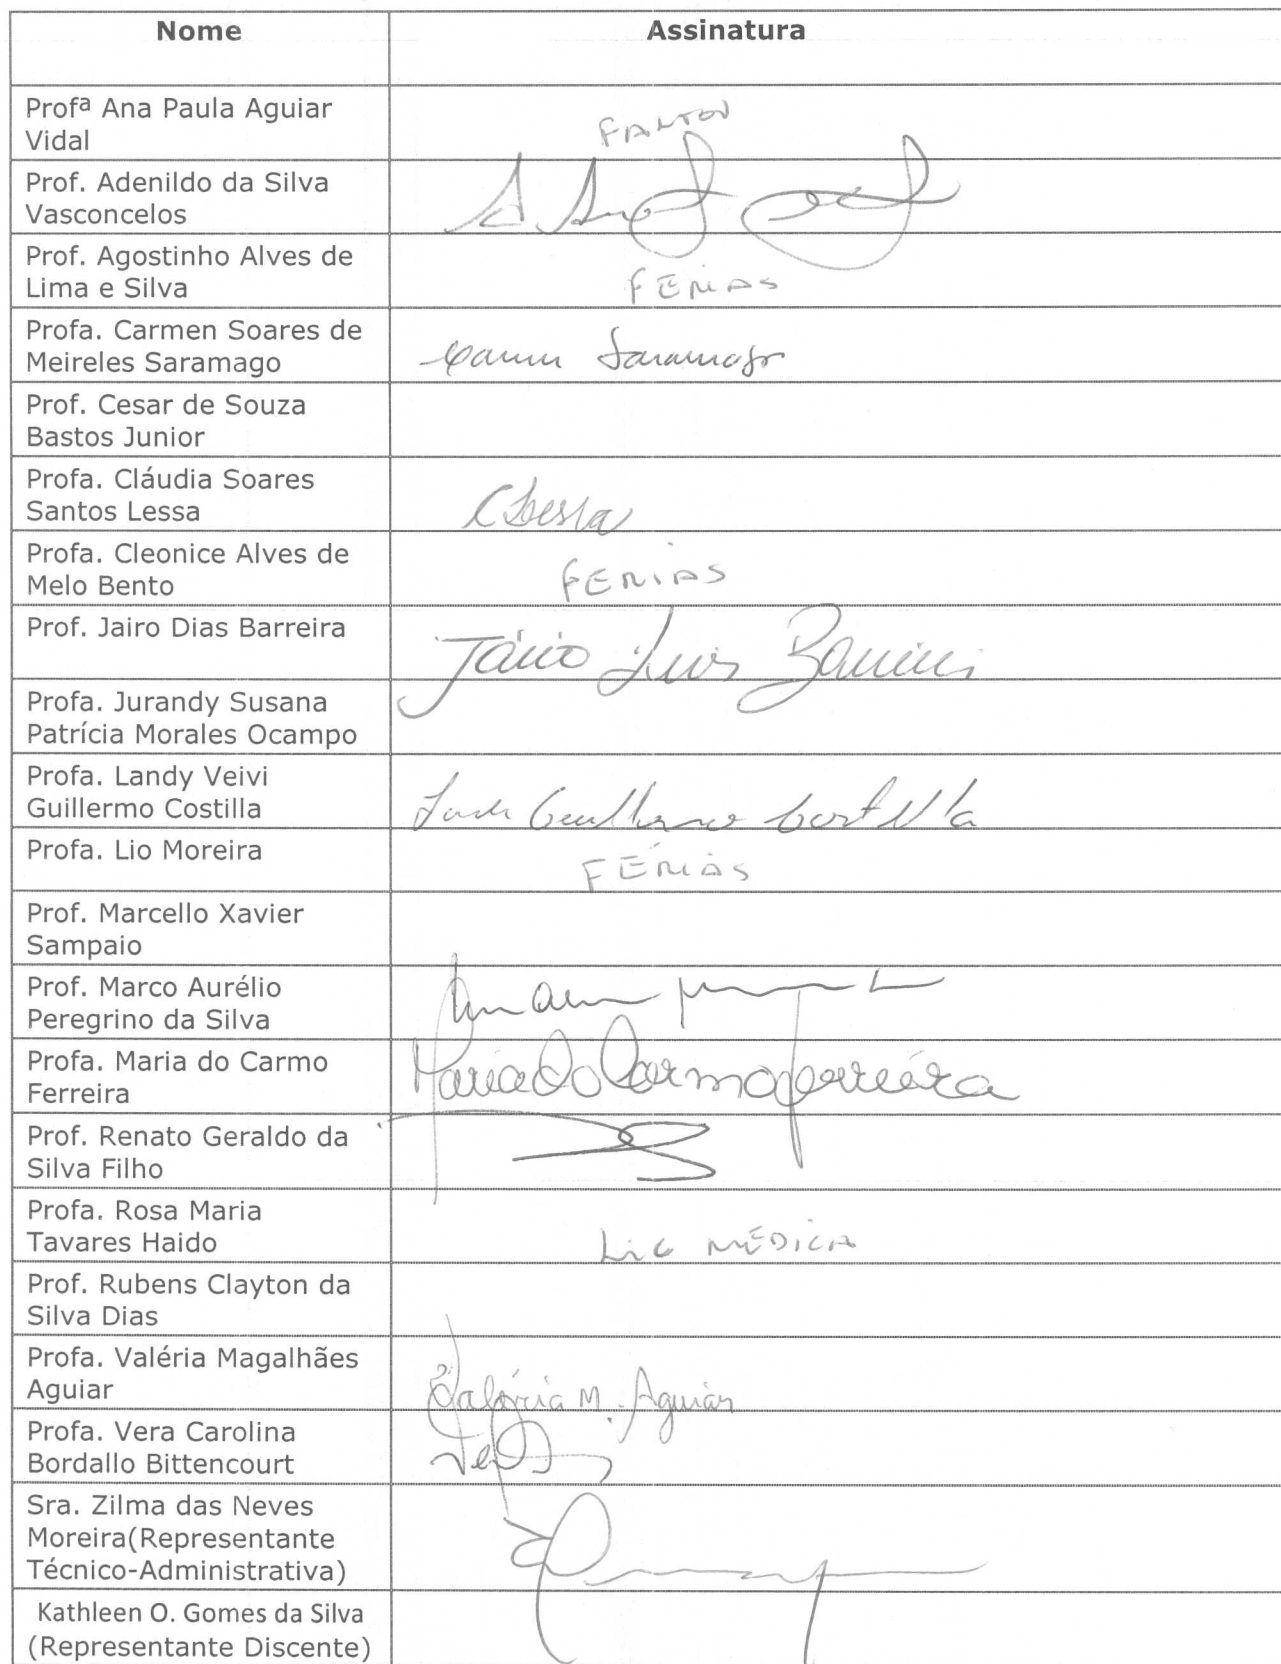 Nome Assinatura
Profª Ana Paula Aguiar
Vidal
FALTOU
Prof. Adenildo da Silva
Vasconcelos
Prof. Agostinho Alves de
Lima e Silva
FÉRIAS
Profa. Carmen Soares de
Meireles Saramago
Carmen Saramago
Prof. Cesar de Souza
Bastos Junior
Profa. Cláudia Soares
Santos Lessa
CLessa
Profa. Cleonice Alves de
Melo Bento
FERIAS
Prof. Jairo Dias Barreira
Profa. Jurandy Susana
Patrícia Morales Ocampo
Profa. Landy Veivi
Guillermo Costilla
Guillermo Costilla
Profa. Lio Moreira
FÉRIAS
Prof. Marcello Xavier
Sampaio
Prof. Marco Aurélio
Peregrino da Silva
Profa. Maria do Carmo
Ferreira
Maria do Carmo Ferreira
Prof. Renato Geraldo da
Silva Filho
Profa. Rosa Maria
Tavares Haido
Lic MÉDICA
Prof. Rubens Clayton da
Silva Dias
Profa. Valéria Magalhães
Aguiar
Valéria M. Aguiar
Profa. Vera Carolina
Bordallo Bittencourt
Sra. Zilma das Neves
Moreira(Representante
Técnico-Administrativa)
Kathleen O. Gomes da Silva
(Representante Discente)